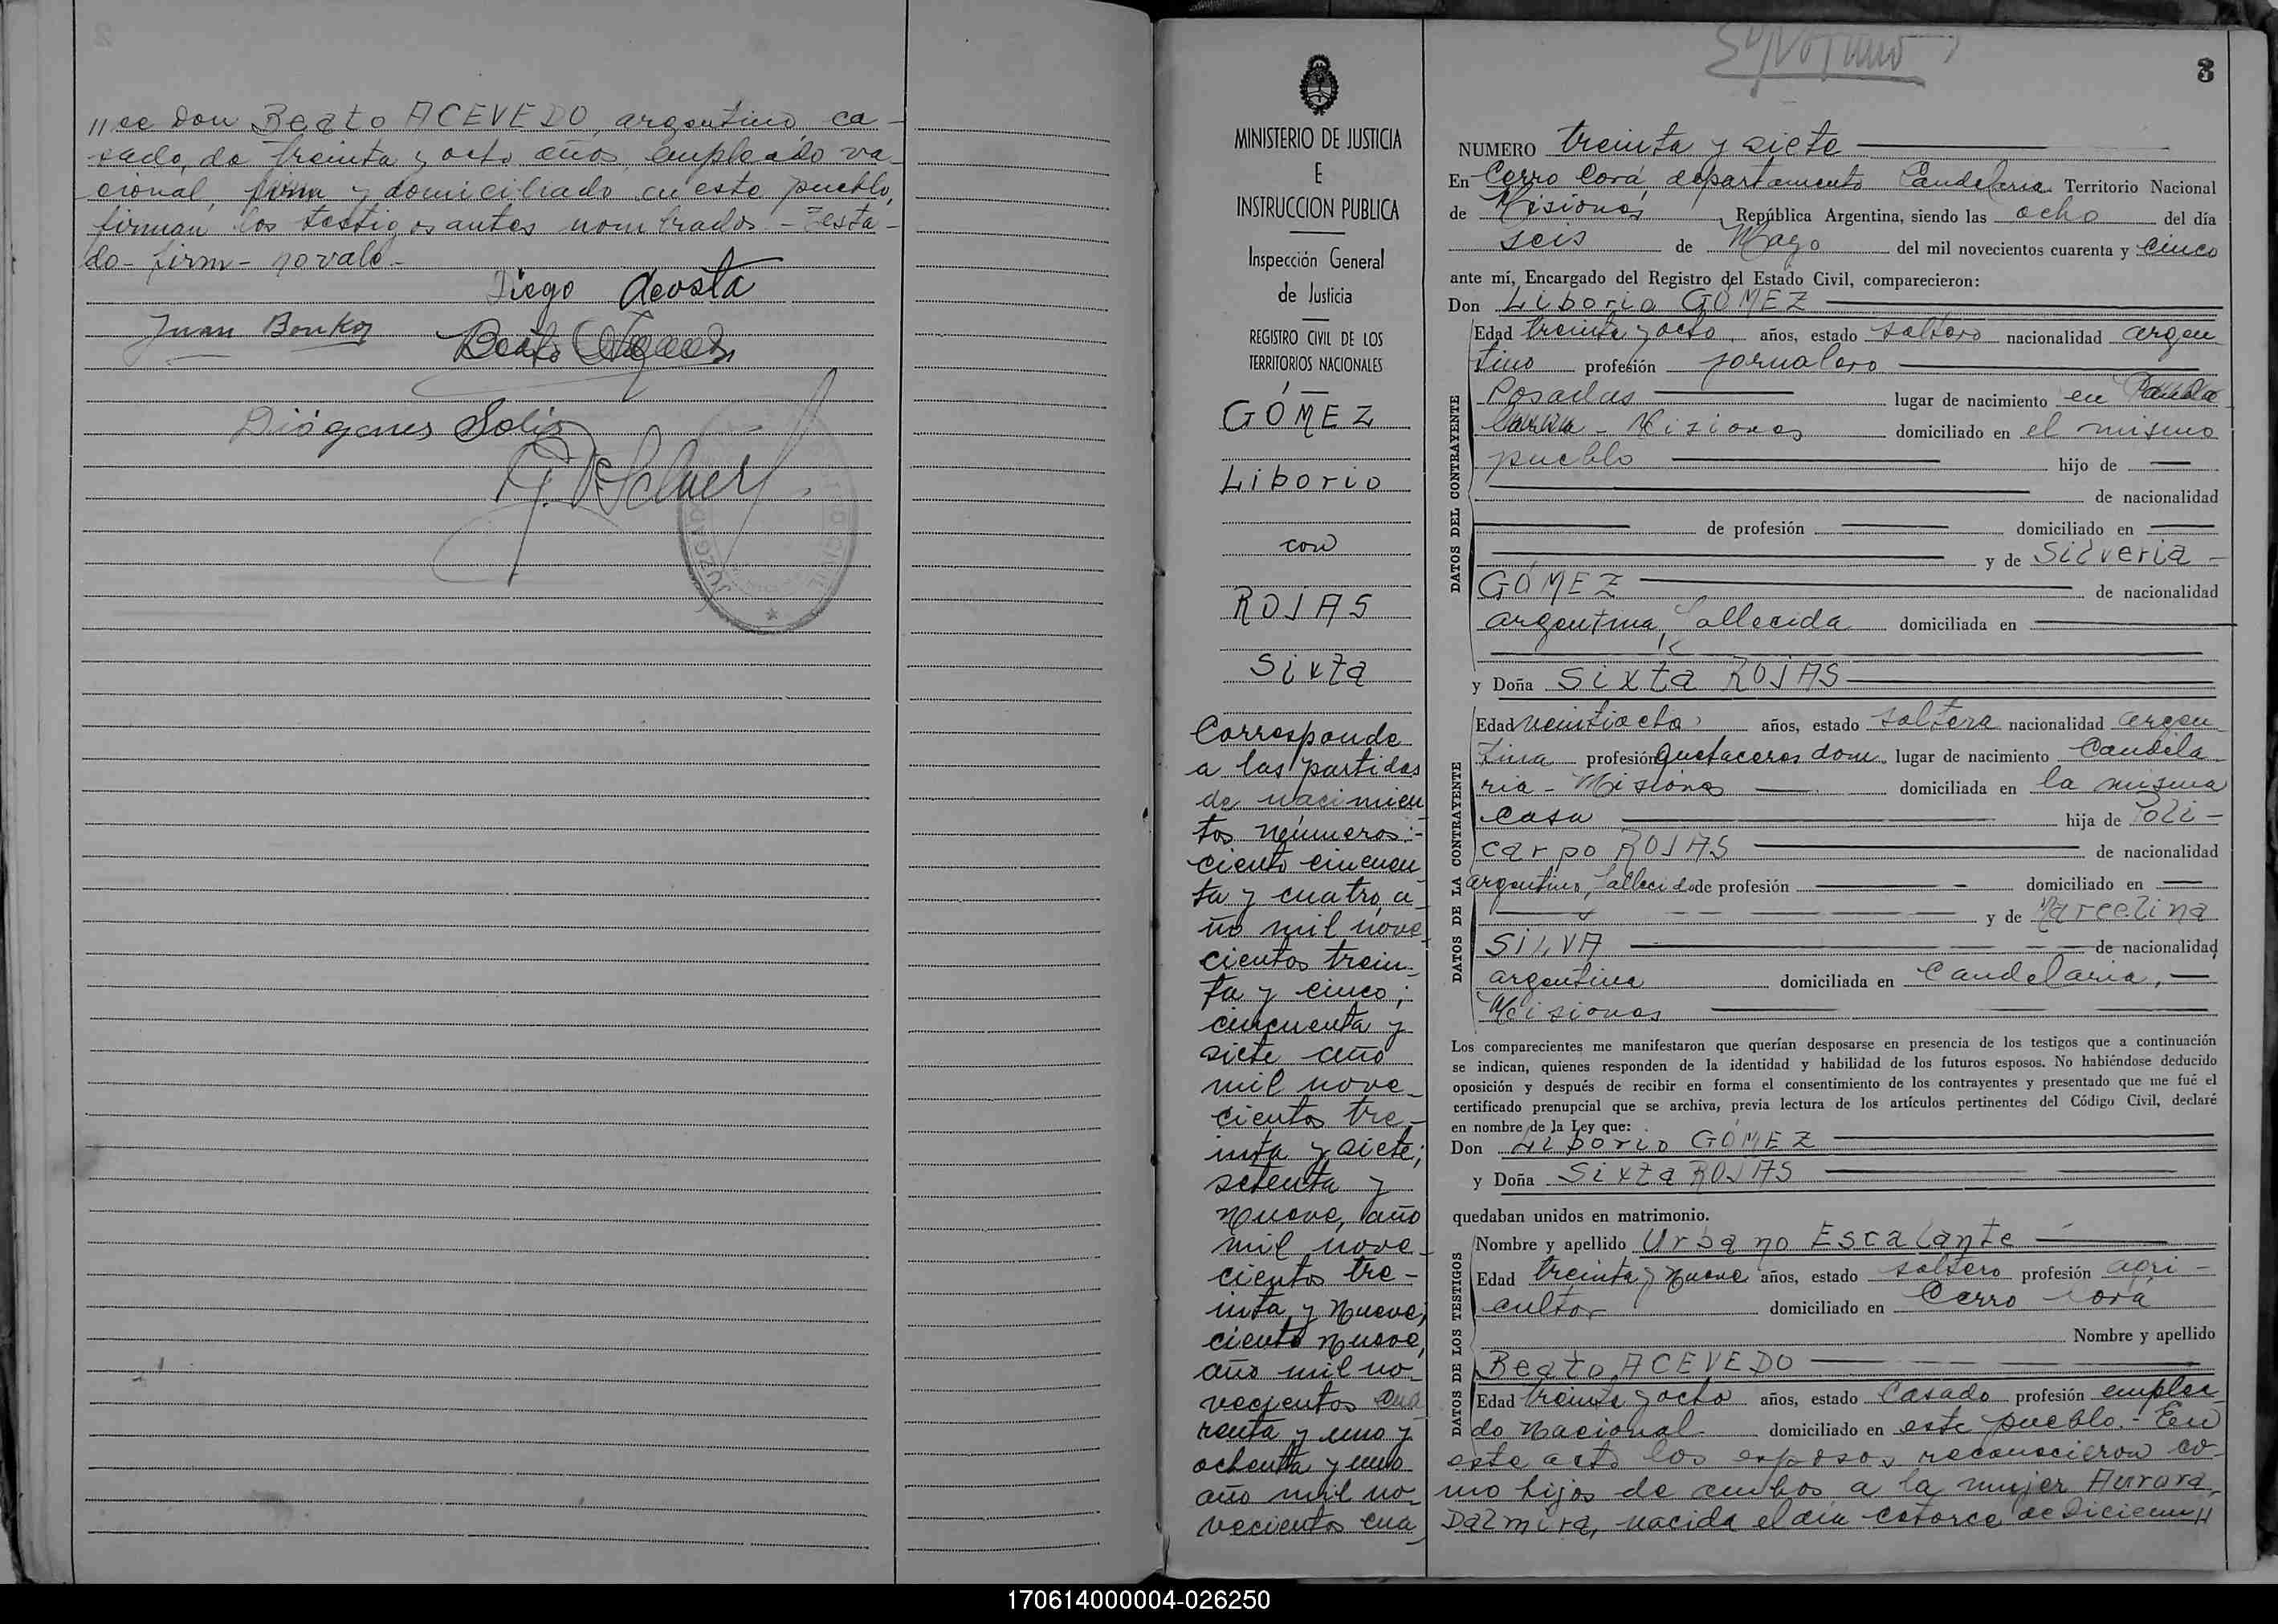 //ce Don Beato ACEVEDO, argentino, ca-
sado, de treinta y octo años, empleado na-
cional, firm y domiciliado en este pueblo,
firman los testigos antes nombrados.- Testa-
do- firm- no vale.-
Diego Acosta
Juan Bonkos
Beato Acevedo
Diógenes Solís
MINISTERIO DE JUSTICIA
E
INSTRUCCION PUBLICA
Inspección General
de Justicia
REGISTRO CIVIL DE LOS
TERRITORIOS NACIONALES
GÓMEZ
Liborio
con
ROJAS
Sixta
Corresponde
a las partidas
de nacimien
tos números:-
ciento cincuen
ta y cuatro, a-
ño mil nove-
cientos trein-
ta y cinco;
cincuenta y
siete año
mil nove-
cientos tre-
inta y siete;
setenta y
nueve, año
mil nove-
cientos tre-
inta y nueve;
ciento nueve,
año mil no-
vecientos cua
renta y uno y
ochenta y uno
año mil no-
vecientos cua
8
NUMERO treinta y siete
En Cerro Corá, departamento Candelaria Territorio Nacional
de Misiones, República Argentina, siendo las ocho del día
seis de Mayo del mil novecientos cuarenta y cinco
ante mí, Encargado del Registro del Estado Civil, comparecieron:
Don Liborio GÓMEZ
DATOS DEL CONTRAYENTE
Edad treinta y octo años, estado soltero nacionalidad argen
tino profesión jornalero
Posadas lugar de nacimiento en Cande
laria - Misiones domiciliado en el mismo
pueblo hijo de
de nacionalidad
de profesión domiciliado en
y de Silveria
GÓMEZ de nacionalidad
argentina, fallecida domiciliada en
y Doña Sixta ROJAS
DATOS DE LA CONTRAYENTE
Edad veintiocho años, estado soltera nacionalidad argen
tina profesión quehaceres dom. lugar de nacimiento Candela
ria - Misiones domiciliada en la misma
casa hija de Poli-
carpo ROJAS de nacionalidad
argentino, fallecido de profesión domiciliado en
y de Marcelina
SILVA de nacionalidad
argentina domiciliada en Candelaria,
Misiones
Los comparecientes me manifestaron que querían desposarse en presencia de los testigos que a continuación
se indican, quienes responden de la identidad y habilidad de los futuros esposos. No habiéndose deducido
oposición y después de recibir en forma el consentimiento de los contrayentes y presentado que me fué el
certificado prenupcial que se archiva, previa lectura de los artículos pertinentes del Código Civil, declaré
en nombre de la Ley que:
Don Liborio GÓMEZ
y Doña Sixta ROJAS
quedaban unidos en matrimonio.
DATOS DE LOS TESTIGOS
Nombre y apellido Urbano Escalante
Edad treinta y nueve años, estado soltero profesión agri-
cultor domiciliado en Cerro Corá
Nombre y apellido
Beato ACEVEDO
Edad treinta y octo años, estado Casado profesión emplea-
do Nacional domiciliado en este pueblo.- En
este acto los esposos reconocieron co-
mo hijos de ambos a la mujer Aurora
Dalmira, nacida el día catorce de Diciem//
170614000004-026250